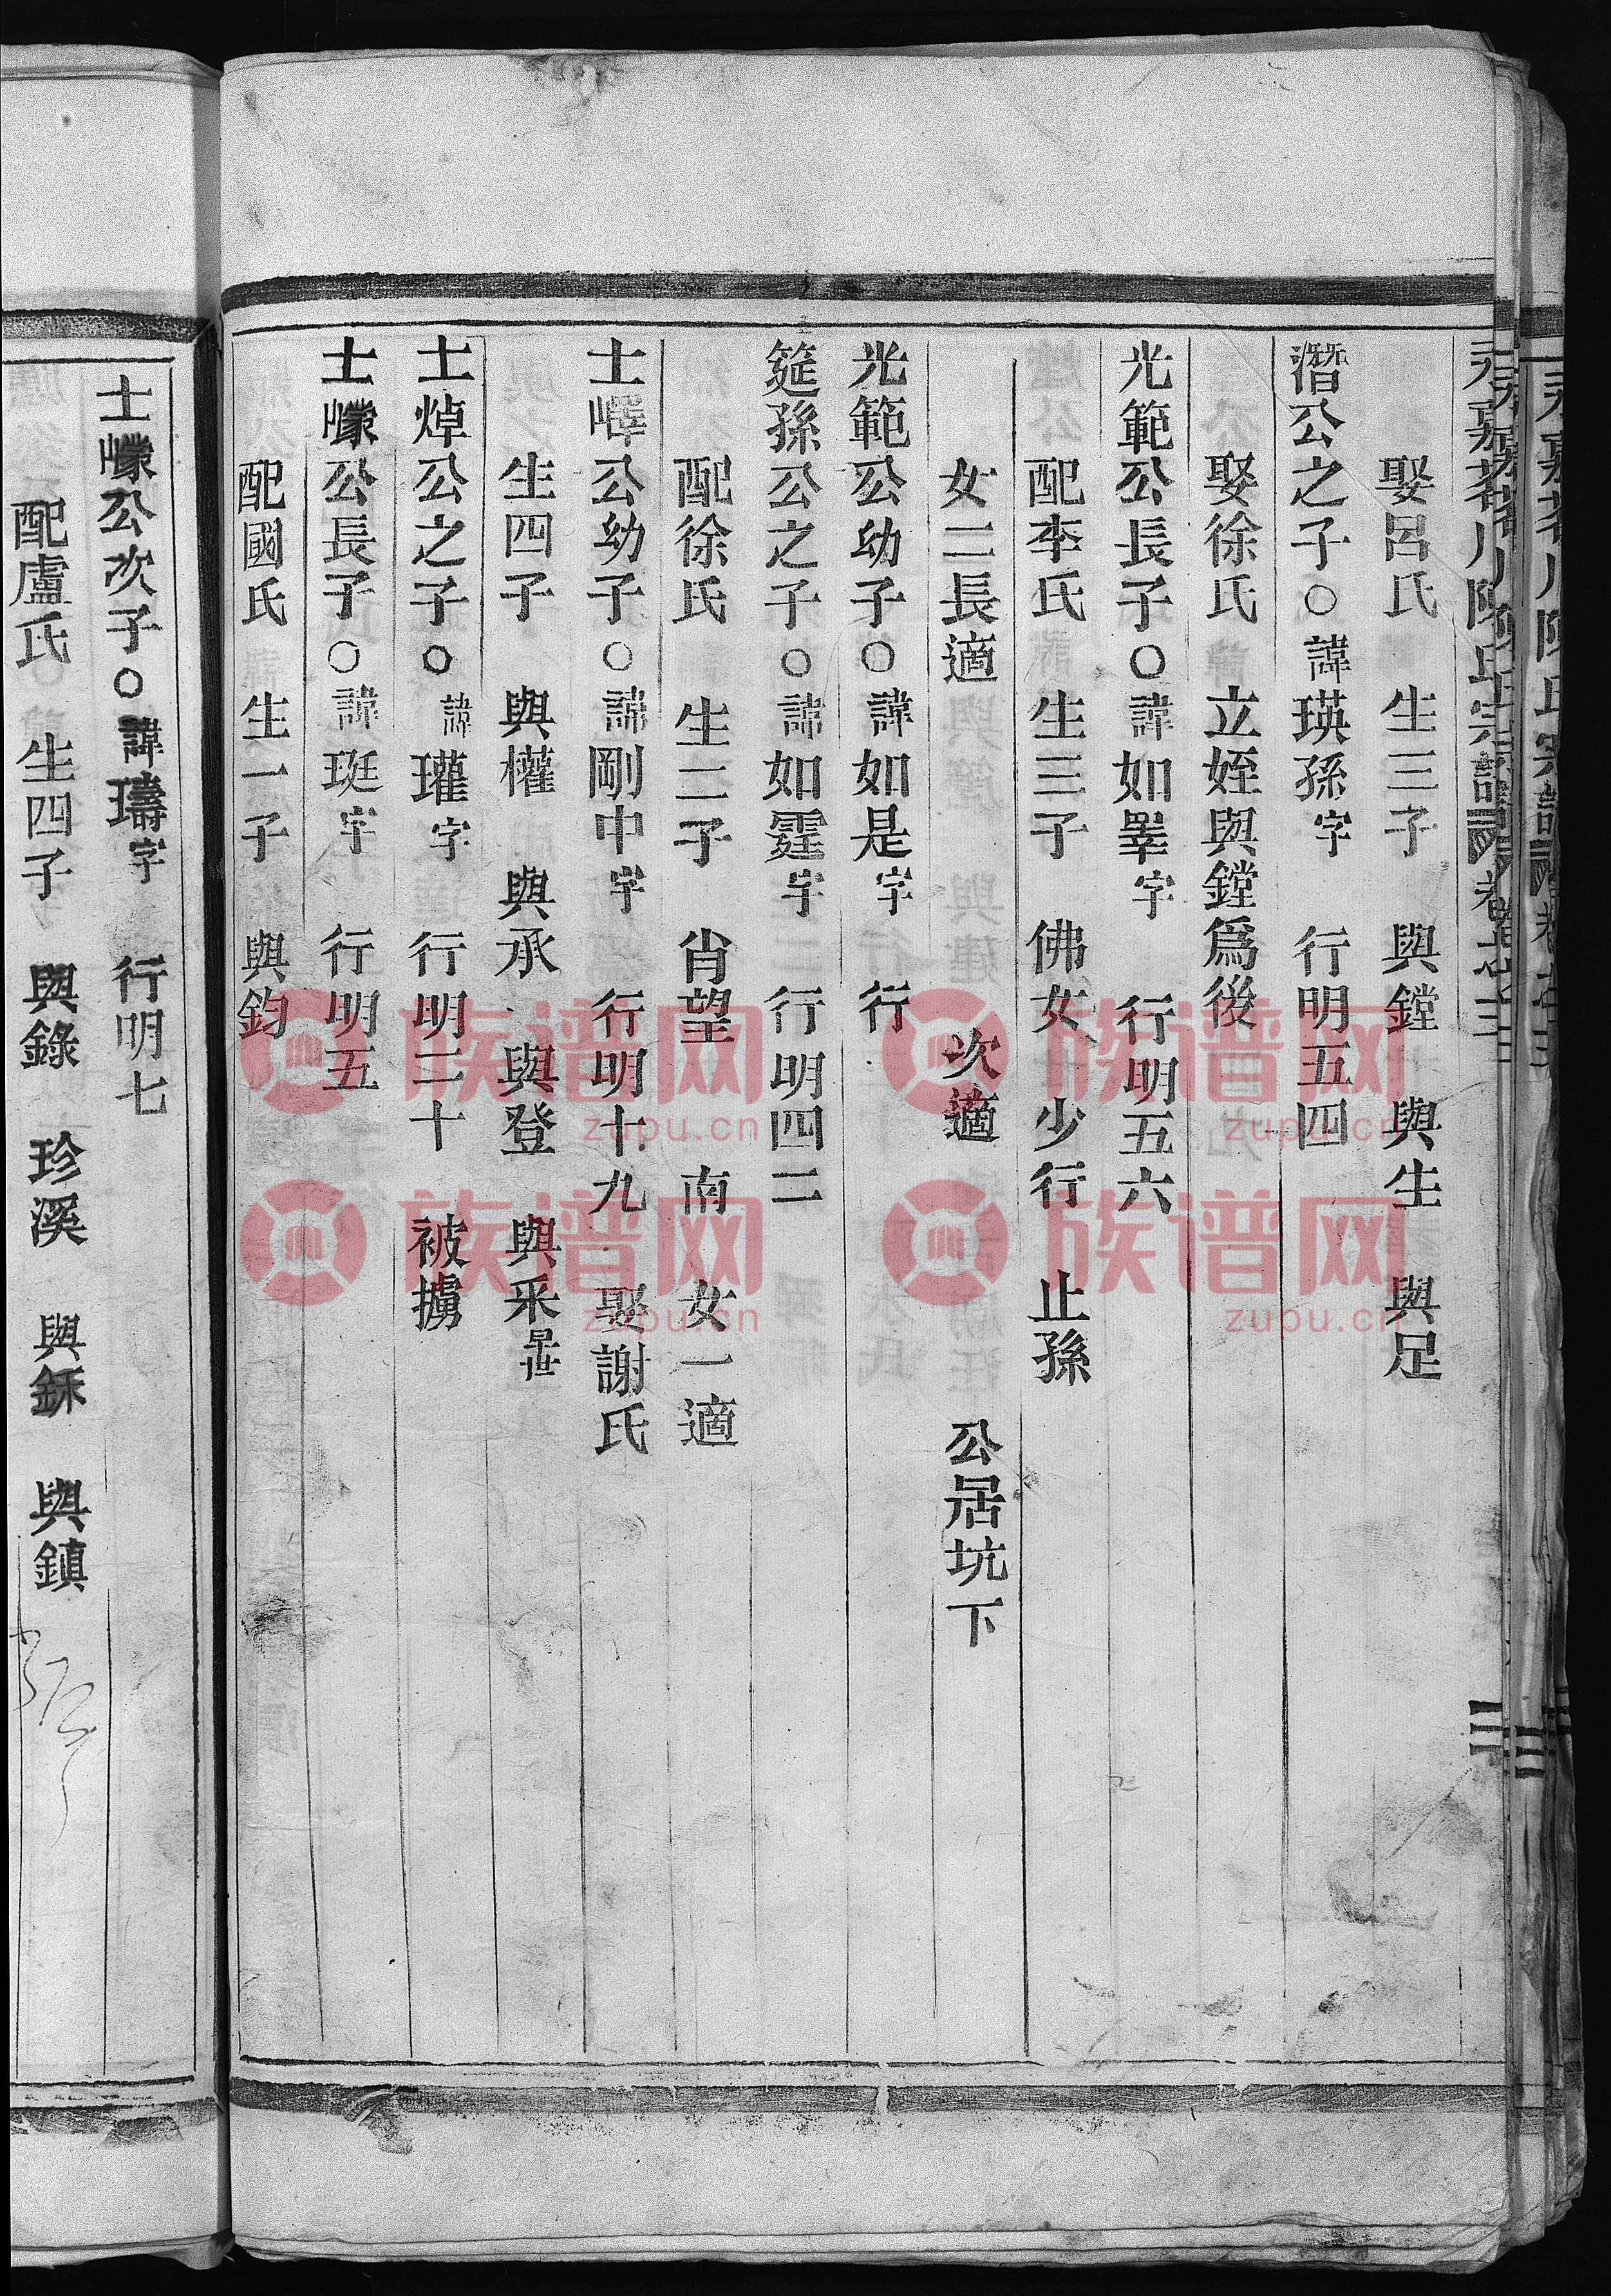 娶呂氏 生三子 與鏜 與生 與足
潛公之子○諱瑛孫字 行明五四
娶徐氏 立姪與鏜爲後
光範公長子○諱如睪字 行明五六
配李氏 生三子 佛女 少行 止孫
女二長適 次適 公居坑下
光範公幼子○諱如是字 行
筵孫公之子○諱如霆字 行明四二
配徐氏 生二子 肖望 南 女一適
士嶧公幼子○諱剛中字 行明十九 娶謝氏
生四子 與權 與承 與登 與采早世
士焯公之子○諱瓘字 行明二十 被擄
士㠓公長子○諱珽字 行明五
配國氏 生一子 與鈞
士㠓公次子○諱璹字 行明七
配盧氏 生四子 與錄 珍溪 與銾 與鎮
族谱网
zupu.cn
族谱网
zupu.cn
族谱网
zupu.cn
族谱网
zupu.cn